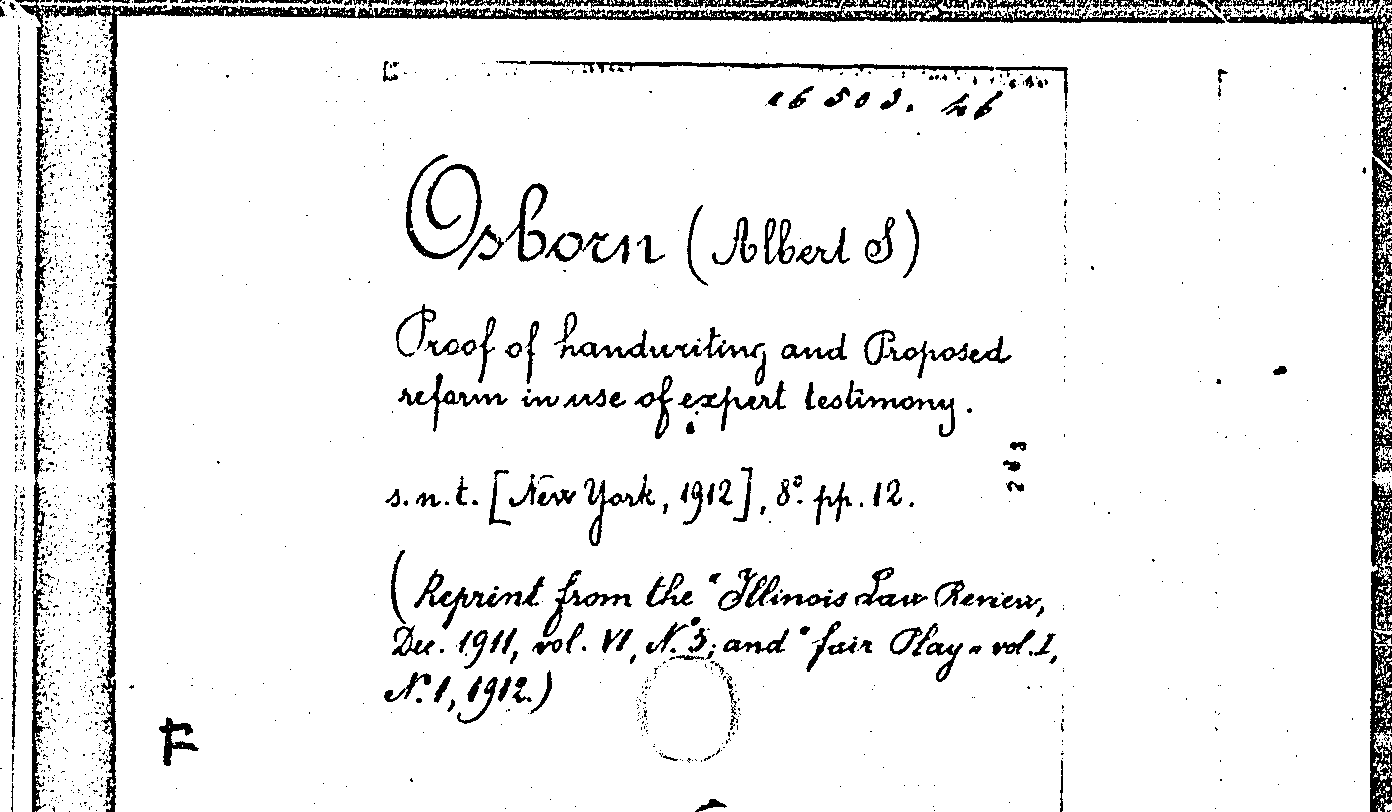 16503. 46
Osborn (Albert S)
Proof of handwriting and Proposed
reform in use of expert testimony.
s.n.t. [New York, 1912], 8° pp. 12.
(Reprint from the "Illinois Law Review,
Dec. 1911, vol. VI, N.° 5; and "fair Play" vol. I,
N.° 1, 1912.)
F